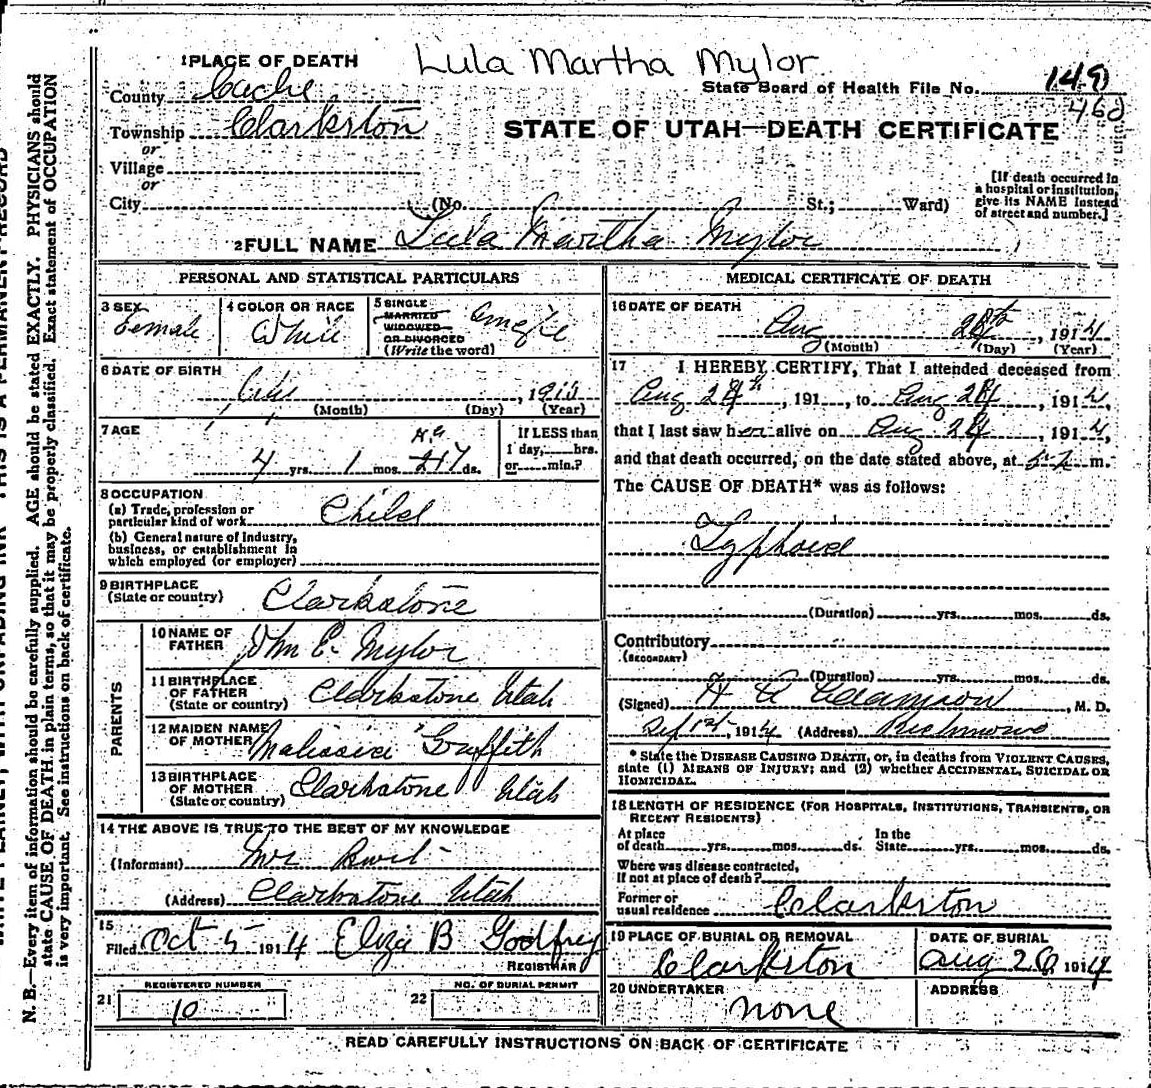 Lula Martha Mylor
1 PLACE OF DEATH
County Cache
State Board of Health File No. 149
460
Township Clarkston
STATE OF UTAH—DEATH CERTIFICATE
or
Village
or
City (No. St.; Ward)
[If death occurred in
a hospital or institution,
give its NAME instead
of street and number.]
2 FULL NAME Lula Martha Mylor
PERSONAL AND STATISTICAL PARTICULARS
3 SEX Female
4 COLOR OR RACE White
5 SINGLE
MARRIED
WIDOWED
OR DIVORCED
(Write the word)
6 DATE OF BIRTH , 1910
(Month) (Day) (Year)
7 AGE
4 yrs. 1 mos. ds.
If LESS than
1 day, hrs.
or min.?
8 OCCUPATION
(a) Trade, profession or
particular kind of work Child
(b) General nature of Industry,
business, or establishment in
which employed (or employer)
9 BIRTHPLACE
(State or country) Clarkstone
PARENTS
10 NAME OF
FATHER Wm E. Mylor
11 BIRTHPLACE
OF FATHER
(State or country) Clarkstone Utah
12 MAIDEN NAME
OF MOTHER Malissia Griffith
13 BIRTHPLACE
OF MOTHER
(State or country) Clarkstone Utah
14 THE ABOVE IS TRUE TO THE BEST OF MY KNOWLEDGE
(Informant)
(Address) Clarkstone Utah
15
Filed Oct 5 1914 Eliza B Godfrey
REGISTRAR
REGISTERED NUMBER
21 10
NO. OF BURIAL PERMIT
22
MEDICAL CERTIFICATE OF DEATH
16 DATE OF DEATH
Aug , 1914
(Month) (Day) (Year)
17 I HEREBY CERTIFY, That I attended deceased from
Aug , 191 , to Aug , 1914,
that I last saw her alive on Aug , 1914,
and that death occurred, on the date stated above, at m.
The CAUSE OF DEATH* was as follows:
Typhoid
(Duration) yrs. mos. ds.
Contributory
(SECONDARY)
(Duration) yrs. mos. ds.
(Signed) , M. D.
Sep 1st, 1914 (Address) Richmond
* State the DISEASE CAUSING DEATH, or, in deaths from VIOLENT CAUSES,
state (1) MEANS OF INJURY; and (2) whether ACCIDENTAL, SUICIDAL OR
HOMICIDAL.
18 LENGTH OF RESIDENCE (FOR HOSPITALS, INSTITUTIONS, TRANSIENTS, OR
RECENT RESIDENTS)
At place
of death yrs. mos. ds.
In the
State yrs. mos. ds.
Where was disease contracted,
If not at place of death?
Former or
usual residence Clarkston
19 PLACE OF BURIAL OR REMOVAL
Clarkston
DATE OF BURIAL
Aug 26 1914
20 UNDERTAKER
none
ADDRESS
READ CAREFULLY INSTRUCTIONS ON BACK OF CERTIFICATE
N. B.—Every item of information should be carefully supplied. AGE should be stated EXACTLY. PHYSICIANS should
state CAUSE OF DEATH in plain terms, so that it may be properly classified. Exact statement of OCCUPATION
is very important. See instructions on back of certificate.